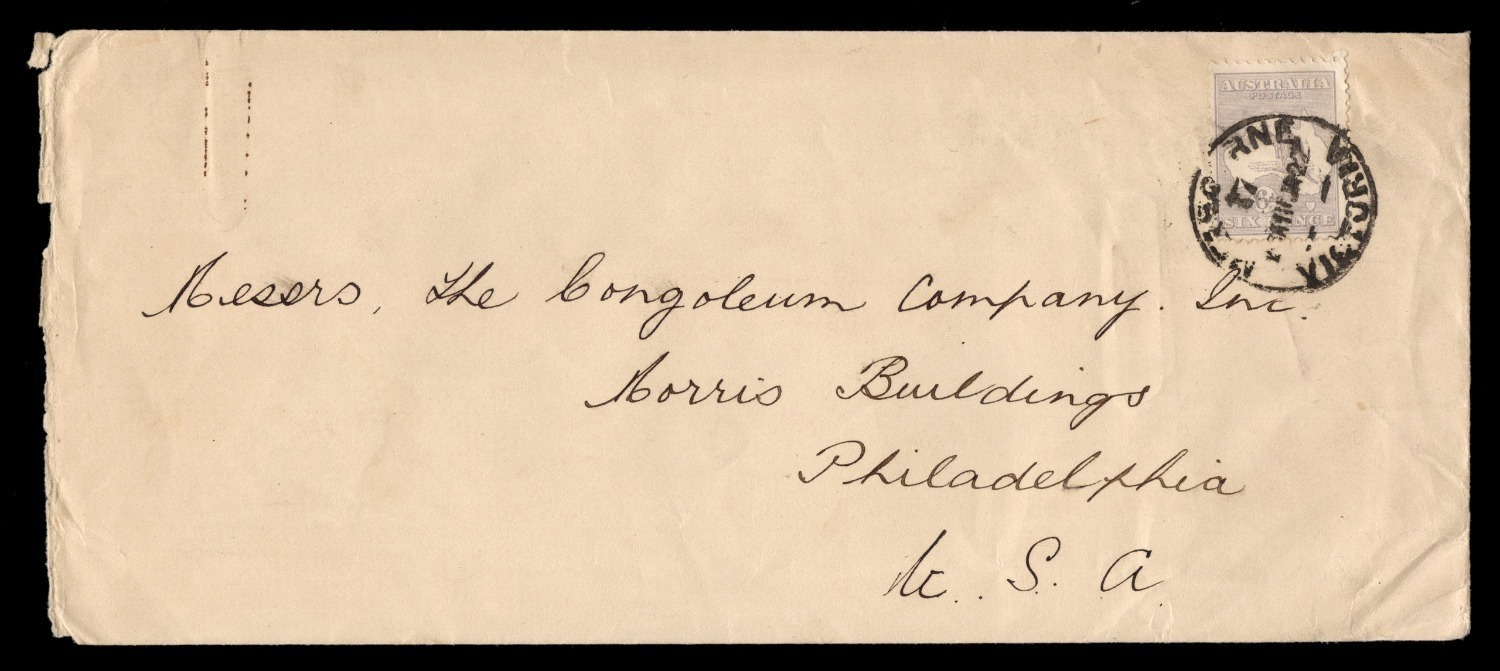 AUSTRALIA
POSTAGE
6D
SIX PENCE
MELBOURNE VICTORIA
Messrs, The Congoleum Company. Inc.
Morris Buildings
Philadelphia
U.S.A.